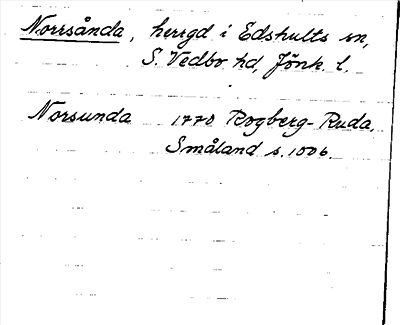 Norrsånda, herrgd i Edshults sn,
S. Vedbo hd, Jönk. l.
Norsunda 1770 Rogberg-Ruda,
Småland s. 1006.